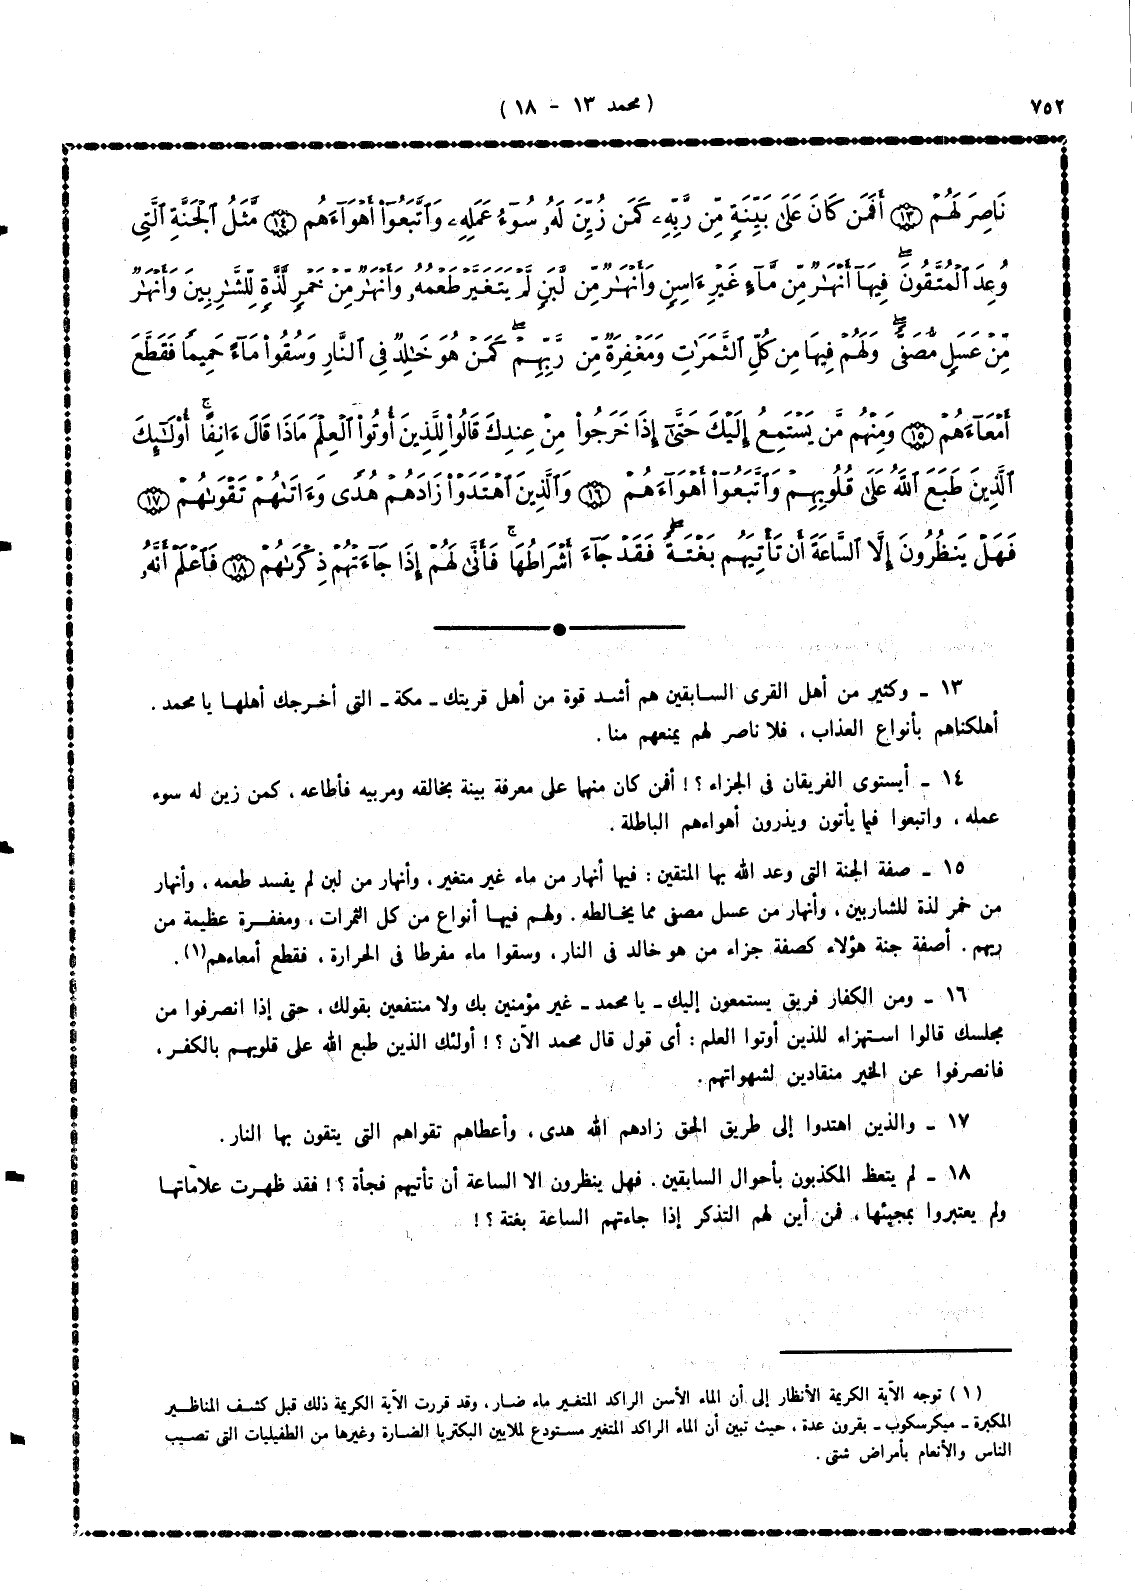 ٧٥٢
( محمد ١٣ - ١٨ )
نَاصِرَ لَهُمْ ١٣ أَفَمَن كَانَ عَلَىٰ بَيِّنَةٍ مِّن رَّبِّهِۦ كَمَن زُيِّنَ لَهُۥ سُوٓءُ عَمَلِهِۦ وَٱتَّبَعُوٓا۟ أَهْوَآءَهُم ١٤ مَّثَلُ ٱلْجَنَّةِ ٱلَّتِى
وُعِدَ ٱلْمُتَّقُونَ ۖ فِيهَآ أَنْهَـٰرٌ مِّن مَّآءٍ غَيْرِ ءَاسِنٍ وَأَنْهَـٰرٌ مِّن لَّبَنٍ لَّمْ يَتَغَيَّرْ طَعْمُهُۥ وَأَنْهَـٰرٌ مِّنْ خَمْرٍ لَّذَّةٍ لِّلشَّـٰرِبِينَ وَأَنْهَـٰرٌ
مِّنْ عَسَلٍ مُّصَفًّى ۖ وَلَهُمْ فِيهَا مِن كُلِّ ٱلثَّمَرَٰتِ وَمَغْفِرَةٌ مِّن رَّبِّهِمْ ۖ كَمَنْ هُوَ خَـٰلِدٌ فِى ٱلنَّارِ وَسُقُوا۟ مَآءً حَمِيمًا فَقَطَّعَ
أَمْعَآءَهُمْ ١٥ وَمِنْهُم مَّن يَسْتَمِعُ إِلَيْكَ حَتَّىٰٓ إِذَا خَرَجُوا۟ مِنْ عِندِكَ قَالُوا۟ لِلَّذِينَ أُوتُوا۟ ٱلْعِلْمَ مَاذَا قَالَ ءَانِفًا ۚ أُو۟لَـٰٓئِكَ
ٱلَّذِينَ طَبَعَ ٱللَّهُ عَلَىٰ قُلُوبِهِمْ وَٱتَّبَعُوٓا۟ أَهْوَآءَهُمْ ١٦ وَٱلَّذِينَ ٱهْتَدَوْا۟ زَادَهُمْ هُدًى وَءَاتَىٰهُمْ تَقْوَىٰهُمْ ١٧
فَهَلْ يَنظُرُونَ إِلَّا ٱلسَّاعَةَ أَن تَأْتِيَهُم بَغْتَةً ۖ فَقَدْ جَآءَ أَشْرَاطُهَا ۚ فَأَنَّىٰ لَهُمْ إِذَا جَآءَتْهُمْ ذِكْرَىٰهُمْ ١٨ فَٱعْلَمْ أَنَّهُۥ
١٣ ـ وكثير من أهل القرى السابقين هم أشد قوة من أهل قريتك ـ مكة ـ التى أخرجك أهلها يا محمد .
أهلكناهم بأنواع العذاب ، فلا ناصر لهم يمنعهم منا .
١٤ ـ أيستوى الفريقان فى الجزاء ؟ ! أفمن كان منهما على معرفة بينة بخالقه ومربيه فأطاعه ، كمن زين له سوء
عمله ، واتبعوا فيما يأتون ويذرون أهواءهم الباطلة .
١٥ ـ صفة الجنة التى وعد الله بها المتقين : فيها أنهار من ماء غير متغير ، وأنهار من لبن لم يفسد طعمه ، وأنهار
من خمر لذة للشاربين ، وأنهار من عسل مصفى مما يخالطه . ولهم فيها أنواع من كل الثمرات ، ومغفرة عظيمة من
ربهم . أصفة جنة هؤلاء كصفة جزاء من هو خالد فى النار ، وسقوا ماء مفرطا فى الحرارة ، فقطع أمعاءهم(١) .
١٦ ـ ومن الكفار فريق يستمعون إليك ـ يا محمد ـ غير مؤمنين بك ولا منتفعين بقولك ، حتى إذا انصرفوا من
مجلسك قالوا استهزاء للذين أوتوا العلم : أى قول قال محمد الآن ؟ ! أولئك الذين طبع الله على قلوبهم بالكفر ،
فانصرفوا عن الخير منقادين لشهواتهم .
١٧ ـ والذين اهتدوا إلى طريق الحق زادهم الله هدى ، وأعطاهم تقواهم التى يتقون بها النار .
١٨ ـ لم يتعظ المكذبون بأحوال السابقين . فهل ينظرون الا الساعة أن تأتيهم فجأة ؟ ! فقد ظهرت علاماتها
ولم يعتبروا بمجيئها ، فمن أين لهم التذكر إذا جاءتهم الساعة بغتة ؟ !
( ١ ) توجه الآية الكريمة الأنظار إلى أن الماء الأسن الراكد المتغير ماء ضار ، وقد قررت الآية الكريمة ذلك قبل كشف المناظير
المكبرة ـ ميكرسكوب ـ بقرون عدة ، حيث تبين أن الماء الراكد المتغير مستودع لملايين البكتريا الضارة وغيرها من الطفيليات التى تصيب
الناس والأنعام بأمراض شتى .